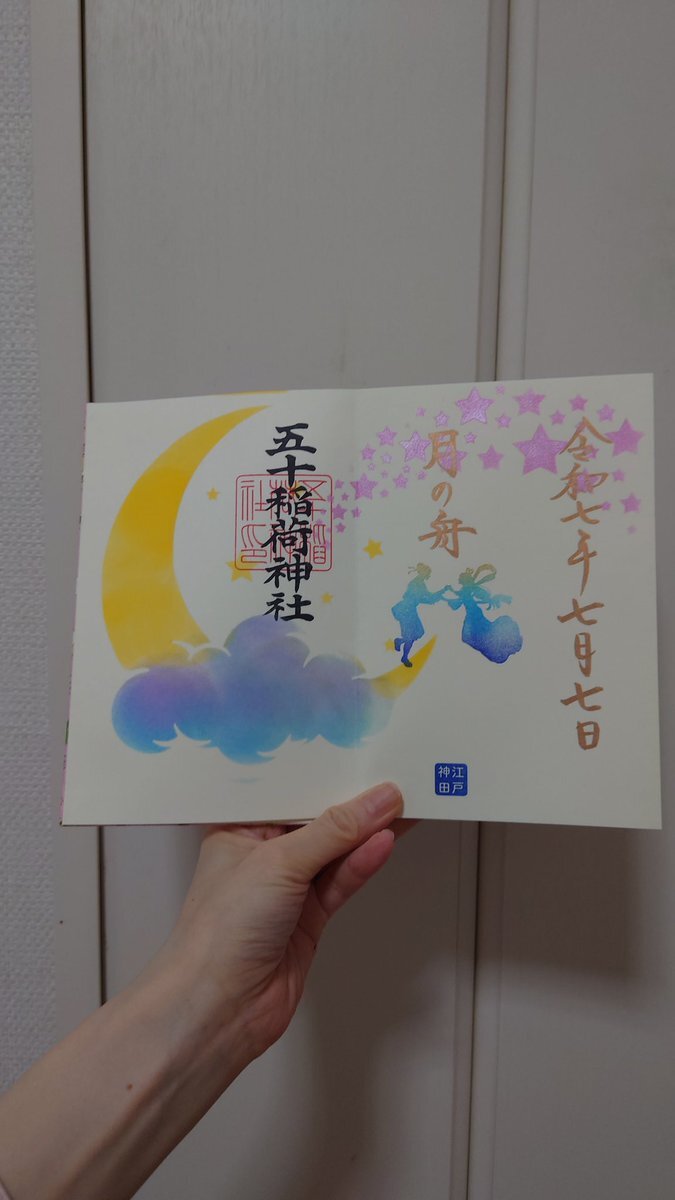 令和七年七月七日
月の舟
五十稲荷神社
江戸
神田